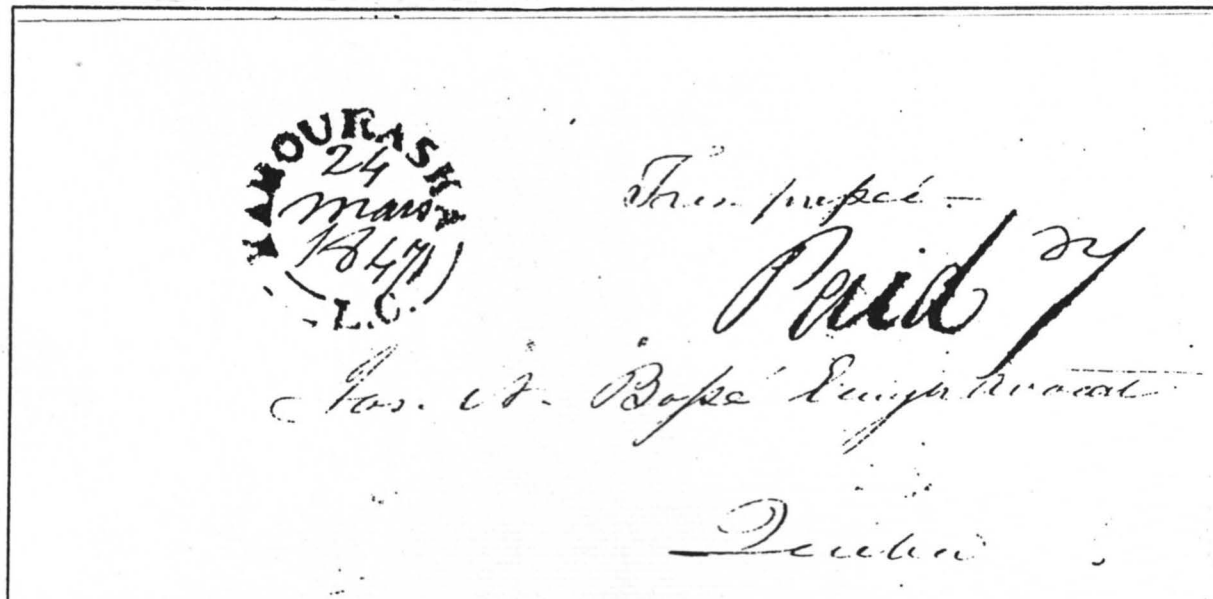 KAMOURASKA
24
mars
1847
L.C.
Très pressé -
Paid 7
Jos. N. Bossé Ecuyer Avocat
Québec